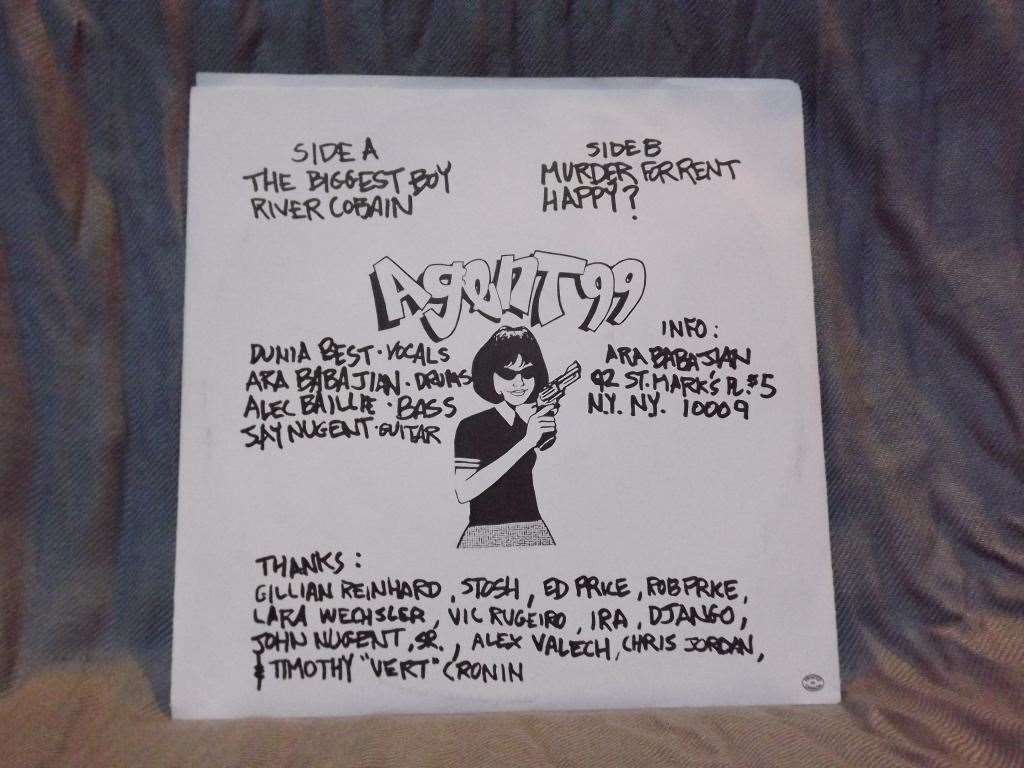 SIDE A
THE BIGGEST BOY
RIVER COBAIN
SIDE B
MURDER FOR RENT
HAPPY?
AgenT 99
DUNIA BEST · VOCALS
ARA BABAJIAN · DRUMS
ALEC BAILLIE · BASS
SAY NUGENT · GUITAR
INFO:
ARA BABAJIAN
92 ST. MARK'S PL. #5
N.Y. N.Y. 10009
THANKS:
GILLIAN REINHARD, STOSH, ED PRICE, ROB PRICE,
LARA WECHSLER, VIC RUGEIRO, IRA, DJANGO,
JOHN NUGENT, SR., ALEX VALECH, CHRIS JORDAN,
& TIMOTHY "VERT" CRONIN